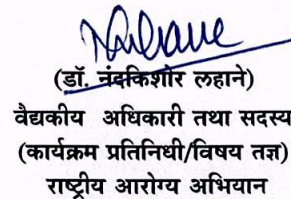 (डॉ. नंदकिशोर लहाने)
वैद्यकीय अधिकारी तथा सदस्य
(कार्यक्रम प्रतिनिधी/विषय तज्ञ)
राष्ट्रीय आरोग्य अभियान